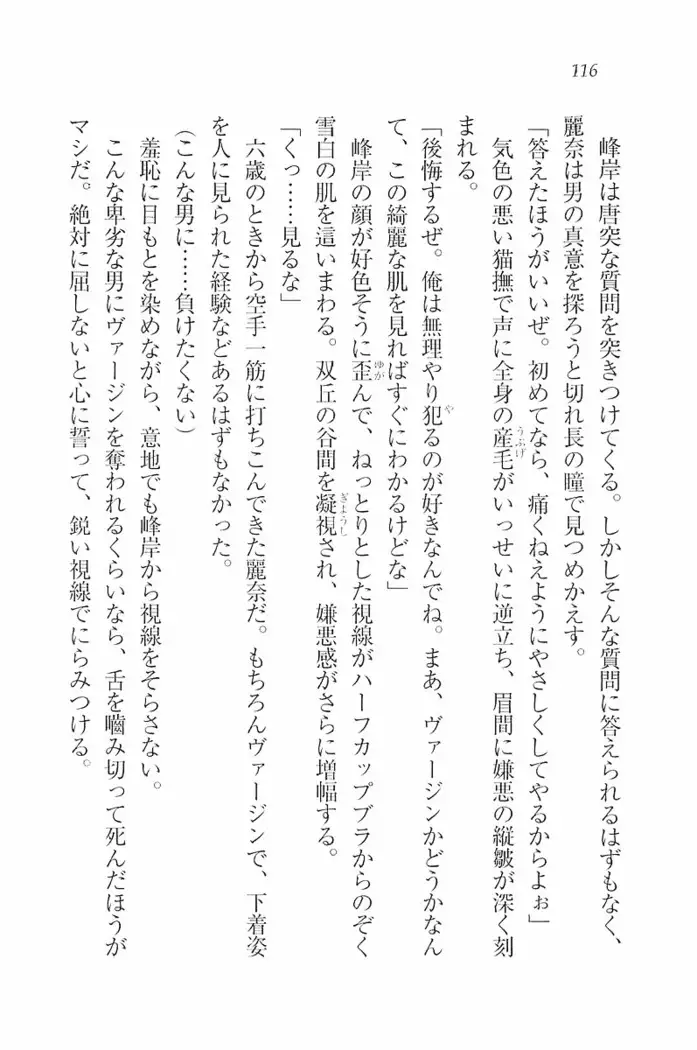 116
峰岸は唐突な質問を突きつけてくる。しかしそんな質問に答えられるはずもなく、
麗奈は男の真意を探ろうと切れ長の瞳で見つめかえす。
「答えたほうがいいぜ。初めてなら、痛くねえようにやさしくしてやるからよぉ」
気色の悪い猫撫で声に全身の産毛がいっせいに逆立ち、眉間に嫌悪の縦皺が深く刻
まれる。
「後悔するぜ。俺は無理やり犯るのが好きなんでね。まあ、ヴァージンかどうかなん
て、この綺麗な肌を見ればすぐにわかるけどな」
峰岸の顔が好色そうに歪んで、ねっとりとした視線がハーフカップブラからのぞく
雪白の肌を這いまわる。双丘の谷間を凝視され、嫌悪感がさらに増幅する。
「くっ……見るな」
六歳のときから空手一筋に打ちこんできた麗奈だ。もちろんヴァージンで、下着姿
を人に見られた経験などあるはずもなかった。
(こんな男に……負けたくない)
羞恥に目もとを染めながら、意地でも峰岸から視線をそらさない。
こんな卑劣な男にヴァージンを奪われるくらいなら、舌を嚙み切って死んだほうが
マシだ。絶対に屈しないと心に誓って、鋭い視線でにらみつける。